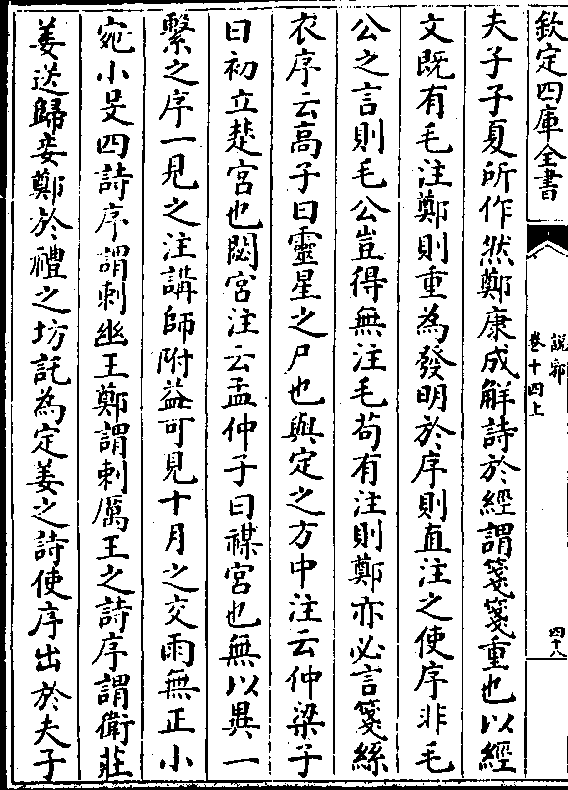 欽定四庫全書
說郛
卷十四上
四十八
夫子子夏所作然鄭康成解詩於經謂箋箋重也以經
文既有毛注鄭則重為發明於序則直注之使序非毛
公之言則毛公豈得無注毛苟有注則鄭亦必言箋絲
衣序云高子曰靈星之尸也與定之方中注云仲梁子
曰初立楚宮也閟宮注云孟仲子曰禖宮也無以異一
繫之序一見之注講師附益可見十月之交雨無正小
宛小旻四詩序謂刺幽王鄭謂刺厲王之詩序謂衛莊
姜送歸妾鄭於禮之坊託為定姜之詩使序出於夫子